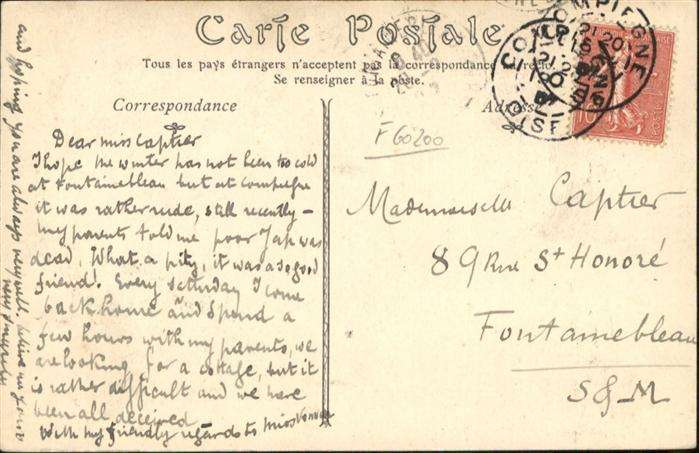 Carte Postale
Tous les pays étrangers n'acceptent pas la correspondance au recto.
Se renseigner à la poste.
Correspondance
Adresse
COMPIEGNE
OISE
F 60200
Dear miss Captier
I hope the winter has not been too cold
at Fontainebleau but at Compiegne
it was rather rude, still recently –
my parents told me poor Jap was
dead, What a pity, it was so good
friend! Every saturday I come
back home and spend a
few hours with my parents, we
are looking for a cottage, but it
is rather difficult and we have
been all deceived
With my friendly regards to miss
and hoping you are always very well, believe me yours
very
Mademoiselle Captier
89 Rue St Honoré
Fontainebleau
S&M